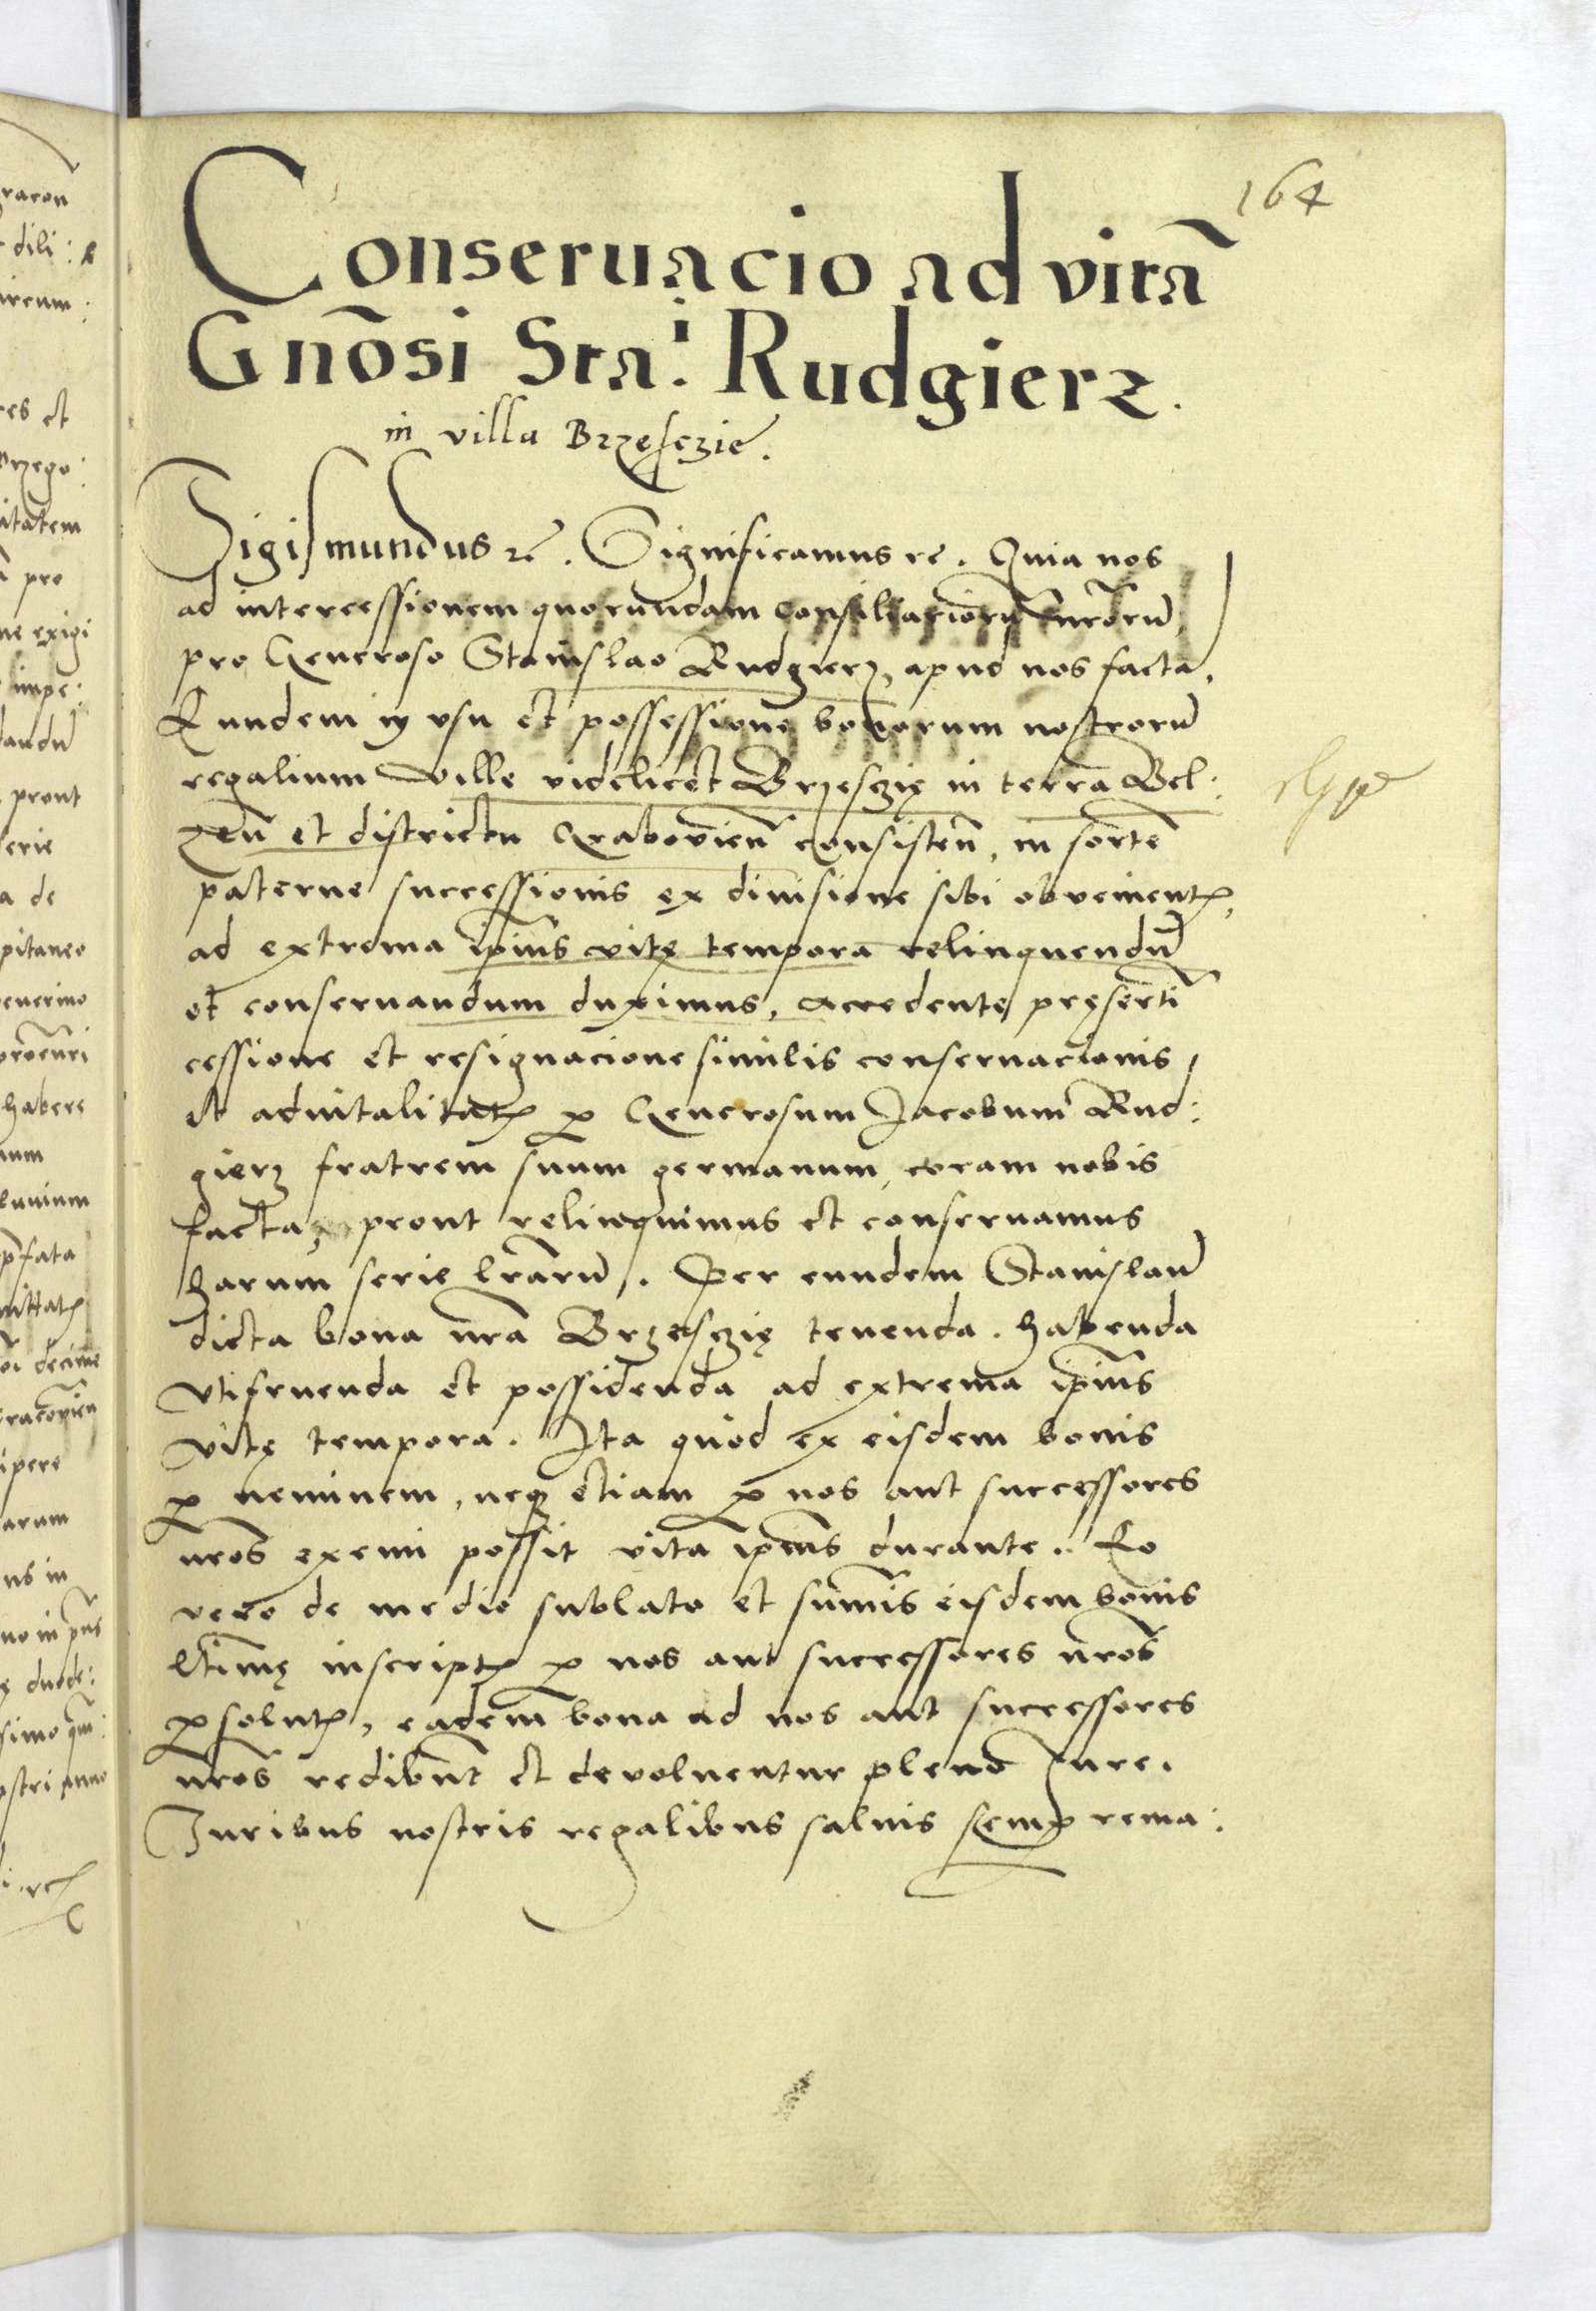 164
Conseruacio ad vitã
Gnõsi Sta: Rudgierz.
in villa Brzesczie.
Sigismundus rc̃. Significamus rc. Quia nos
ad intercessionem quorundam consiliariorũ nr̃orũ
pro Generoso Stanislao Rudgierz, apud nos facta,
Eundem in vsu et possessione bonorum nostrorũ
regalium ville videlicet Brzesczię in terra Bel:
zeñ et districtu Grabovieñ consisteñ, in sortẽ
paterne successionis ex diuisione sibi obvenient̃,
ad extrema ip̃ius vitę tempora relinquendũ
et conseruandum duximus, accedente pręsertĩ
cessione et resignacione similis conseruacionis
et aduitalitat̃ ꝑ Generosum Jacobum Rud:
gierz fratrem suum germanum, coram nobis
facta, prout relinquimus et conseruamus
harum serie lr̃arũ. Per eundem Stanislaũ
dicta bona nr̃a Brzesczię tenenda. habenda
vtifruenda et possidenda ad extrema ip̃ius
vitę tempora. Ita quod ex eisdem bonis
ꝑ neminem, neqꝫ etiam ꝑ nos aut successores
nr̃os eximi possit vita ip̃ius durante. Eo
vero de medio sublato et sum̃is eisdem bonis
ltĩmę inscript̃ ꝑ nos aut successores nr̃os
ꝑsolut̃, eadem bona ad nos aut successores
nr̃os redibũt et devoluentur pleno Jure.
Juribus nostris regalibus saluis semꝑ rema: